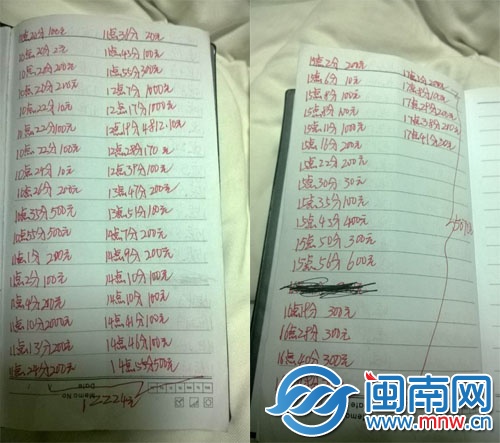 10点20分100元
10点20分2元
10点20分200元
10点22分200元
10点22分10元
10点22分100元
10点22分100元
10点24分10元
10点26分200元
10点35分500元
10点55分500元
11点1分200元
11点2分100元
11点4分200元
11点10分200元
11点13分200元
11点24分200元
11点36分20元
11点43分100元
11点55分300元
12点7分1000元
12点17分1000元
12点19分4812.10元
12点28分170元
12点39分100元
13点47分200元
13点51分100元
14点7分200元
14点9分200元
14点10分100元
14点10分100元
14点41分100元
14点46分100元
14点55分500元
Memo No.
Date
12224元
15点2分200元
15点6分10元
15点8分100元
15点9分100元
15点11分1000元
15点16分200元
15点22分200元
15点30分50元
15点33分100元
15点43分400元
15点50分300元
15点56分600元
300元
16点29分300元
16点40分300元
17点24分200元
17点38分200元
17点41分20元
闽南网
www.mnw.cn